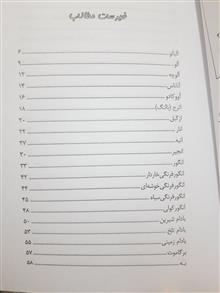 فهرست مطالب
آلبالو ۶
آلو ۹
آلوچه ۱۲
آناناس ۱۴
آووکادو ۱۶
اترج (بالنگ) ۱۸
ازگیل ۲۰
انار ۲۲
انبه ۲۷
انجیر ۳۰
انگور ۳۳
انگورفرنگی‌خاردار ۴۲
انگورفرنگی‌خوشه‌ای ۴۴
انگورفرنگی‌سیاه ۴۵
انگورکولی ۴۸
بادام شیرین ۵۰
بادام تلخ ۵۳
بادام زمینی ۵۵
برگاموت ۵۷
به ۵۸